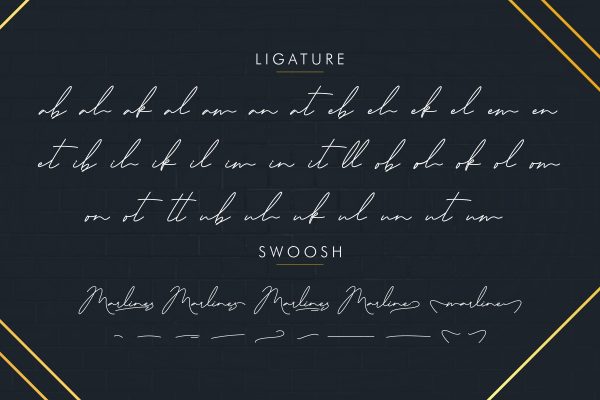 LIGATURE
ab ah ak al am an at eb eh ek el em en
et ib ih ik il im in it ll ob oh ok ol om
on ot tt ub uh uk ul un ut um
SWOOSH
Marlines Marlines Marlines Marline marline